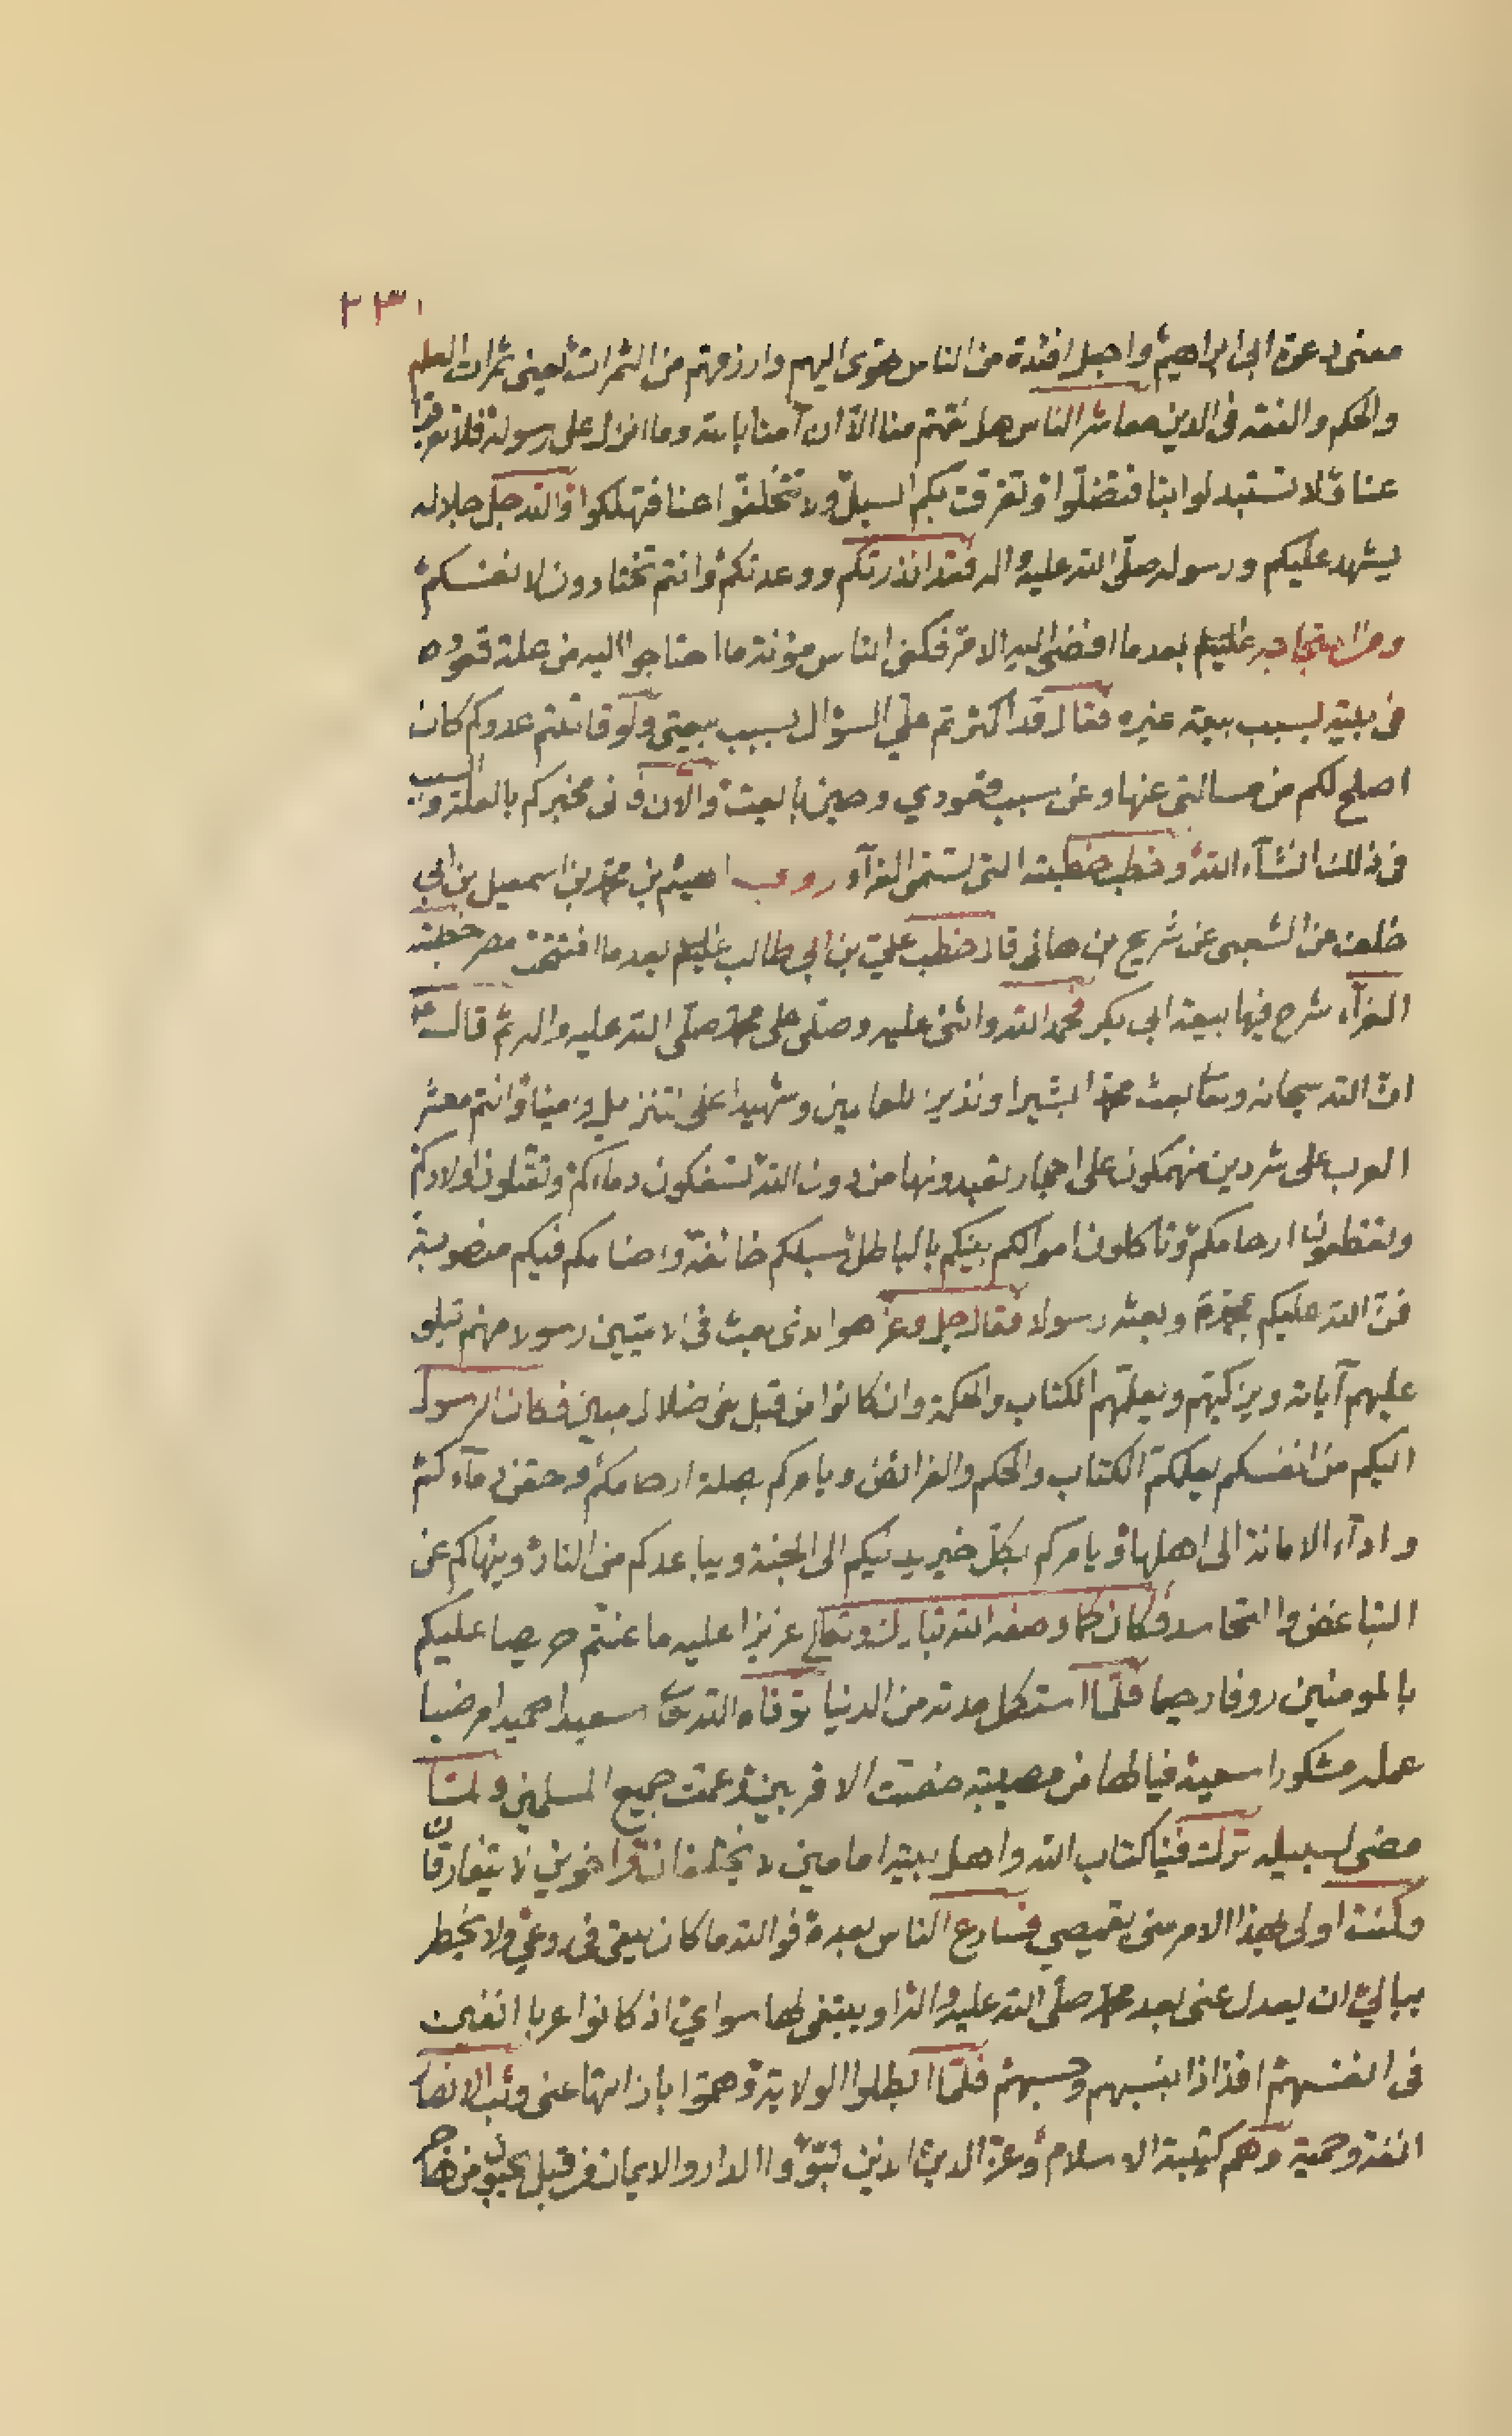 ٢٣١
معنى دعوة ابى ابراهيم واجعل افئدة من الناس تهوى اليهم وارزقهم من الثمرات يعنى ثمرات العلم
والحكم والفقه فى الدين معاشر الناس هل نقمتم منا الا ان آمنا بالله وما انزل على رسوله فلا
عنا ولا تستبدلوا بنا فتضلوا وتفرقت بكم السبل ولا تتخلفوا عنا فتهلكوا والله جل جلاله
يشهد عليكم ورسوله صلى الله عليه واله فقد انذرتكم ووعدتكم وانتم تختارون لانفسكم
بعد ما افضى اليه الامر فكفى الناس مؤنة ما احتاجوا اليه من علة قعوده
فى بيته بسبب بيعة غيره فقال قد اكثرتم علي السؤال بسبب بيعتى ولو قاتلتم عدوكم كان
اصلح لكم من مسالتى عنها وعن سبب قعودي وحين بايعت والان فانى مخبركم بالعلة والسبب
فى ذلك انشآء الله وخطب خطبته التى تسمى الغرآء روى اهيثم بن محمد بن اسمعيل بن ابي
خلف عن الشعبى عن شريح بن هانى قال خطب علي بن ابي طالب عليلم بعد ما افتتحت مصر خطبته
الغرآء شرح فيها بيعة ابى بكر فحمد الله واثنى عليه وصلى على محمد صلى الله عليه واله ثم قال
ان الله سبحانه وتعا بعث محمدا بشيرا ونذيرا للعالمين وشهيدا على تنزيل وزمينا وانتم معشر
العرب على شر دين منهمكون على احجار تعبدونها من دون الله تسفكون دماءكم وتقتلون اولادكم
وتقطعون ارحامكم وتاكلون اموالكم بينكم بالباطل سبلكم خائفة واصنامكم فيكم منصوبة
فمن الله عليكم بمحمد وبعثه رسولا فقال جل وعز هو الذى بعث فى الاميين رسولا منهم تيلو
عليهم آياته ويزكيهم ويعلمهم الكتاب والحكمة وان كانوا من قبل لفى ضلال مبين فكان الرسول
اليكم من انفسكم يعلمكم الكتاب والحكم والفرائض ويامركم بصلة ارحامكم وحقن دمآءكم
وادآء الامانة الى اهلها ويامركم بكل خير يدنيكم الى الجنة ويباعدكم من النار وينهاكم عن
التباغض والتحاسد فكان كما وصفه الله تبارك وتعالى عزيزا عليه ما عنتم حريصا عليكم
بالمومنين روفا رحيما فلما استكمل مدته من الدنيا توفاه الله تعا سعيدا حميدا مرضيا
عمله مشكورا سعيه فيالها من مصيبة خصت الاقربين وعمت جميع المسلمين ولما
مضى لسبيله ترك فينا كتاب الله واهل بيته امامين لا يختلفان واخوين لا يتفارقان
وكنت اولى بهذا الامر منى بقميصي فسارع الناس بعده فوالله ما كان يبقى فى روعي ولا يخطر
ببالي ان يعدل عنى بعد محمد صلى الله عليه واله او يبتغى لها سواي اذ كانوا عربا انفين
فى انفسهم افذاذا بنسبهم وحسبهم فلما ابطلوا الولاية وهموا بازالتها عنى وثب الانصار
انفة وحمية وهم كتيبة الاسلام وعزة الدين الذين تبوؤا الدار والايمان من قبل يحبون من هاجر